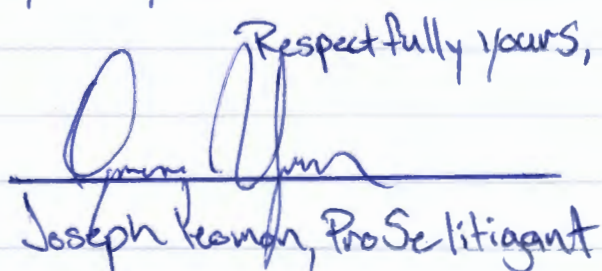 Respectfully yours,
Joseph Yeoman, Pro Se litigant